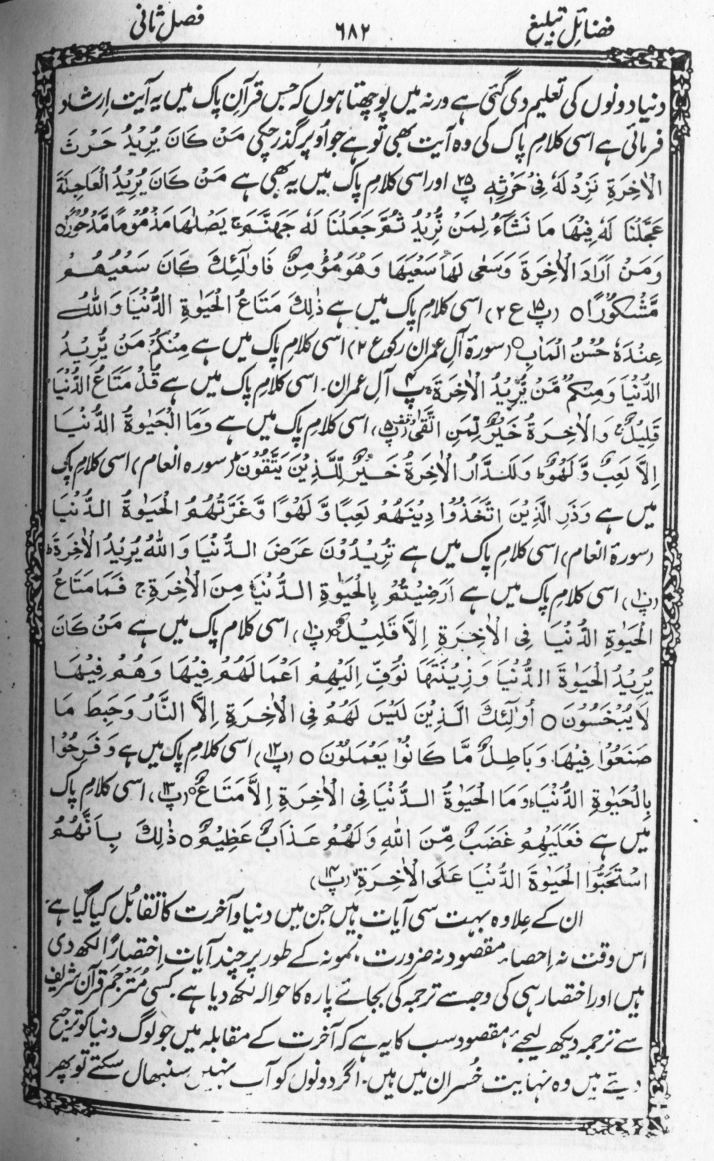 فضائلِ تبلیغ ۶۸۲ فصل ثانی
دنیا دونوں کی تعلیم دی گئی ہے ورنہ میں پوچھتا ہوں کہ جس قرآن پاک میں یہ آیت ارشاد
فرمائی ہے اسی کلامِ پاک کی وہ آیت بھی تو ہے جو اُوپر گذر چکی مَنْ كَانَ يُرِيْدُ حَرْثَ
الْاٰخِرَةِ نَزِدْ لَهٗ فِىْ حَرْثِهٖ پ۲۵ اور اسی کلامِ پاک میں یہ بھی ہے مَنْ كَانَ يُرِيْدُ الْعَاجِلَةَ
عَجَّلْنَا لَهٗ فِيْهَا مَا نَشَآءُ لِمَنْ نُّرِيْدُ ثُمَّ جَعَلْنَا لَهٗ جَهَنَّمَ ج يَصْلٰهَا مَذْمُوْمًا مَّدْحُوْرًا ○
وَمَنْ اَرَادَ الْاٰخِرَةَ وَسَعٰى لَهَا سَعْيَهَا وَهُوَ مُؤْمِنٌ فَاُولٰٓئِكَ كَانَ سَعْيُهُمْ
مَّشْكُوْرًا ○ (پ۱۵ ع ۲) اسی کلامِ پاک میں ہے ذٰلِكَ مَتَاعُ الْحَيٰوةِ الدُّنْيَا وَاللّٰهُ
عِنْدَهٗ حُسْنُ الْمَاٰبِ ○ (سورۃ آل عمران رکوع ۲) اسی کلامِ پاک میں ہے مِنْكُمْ مَنْ يُّرِيْدُ
الدُّنْيَا وَمِنْكُمْ مَّنْ يُّرِيْدُ الْاٰخِرَةَ پ۴ آل عمران. اسی کلامِ پاک میں ہے قُلْ مَتَاعُ الدُّنْيَا
قَلِيْلٌ وَالْاٰخِرَةُ خَيْرٌ لِّمَنِ اتَّقٰى (پ۵)، اسی کلامِ پاک میں ہے وَمَا الْحَيٰوةُ الدُّنْيَا
اِلَّا لَعِبٌ وَّلَهْوٌ ط وَلَلدَّارُ الْاٰخِرَةُ خَيْرٌ لِّلَّذِيْنَ يَتَّقُوْنَ ط (سورہ انعام) اسی کلامِ پاک
میں ہے وَذَرِ الَّذِيْنَ اتَّخَذُوْا دِيْنَهُمْ لَعِبًا وَّ لَهْوًا وَّغَرَّتْهُمُ الْحَيٰوةُ الدُّنْيَا
(سورۃ انعام) اسی کلامِ پاک میں ہے تُرِيْدُوْنَ عَرَضَ الدُّنْيَا وَاللّٰهُ يُرِيْدُ الْاٰخِرَةَ ط
(پ۱۰)، اسی کلامِ پاک میں ہے اَرَضِيْتُمْ بِالْحَيٰوةِ الدُّنْيَا مِنَ الْاٰخِرَةِ ج فَمَا مَتَاعُ
الْحَيٰوةِ الدُّنْيَا فِى الْاٰخِرَةِ اِلَّا قَلِيْلٌ (پ۱۰)، اسی کلام پاک میں ہے مَنْ كَانَ
يُرِيْدُ الْحَيٰوةَ الدُّنْيَا وَزِيْنَتَهَا نُوَفِّ اِلَيْهِمْ اَعْمَالَهُمْ فِيْهَا وَهُمْ فِيْهَا
لَا يُبْخَسُوْنَ ○ اُولٰٓئِكَ الَّذِيْنَ لَيْسَ لَهُمْ فِى الْاٰخِرَةِ اِلَّا النَّارُ وَحَبِطَ مَا
صَنَعُوْا فِيْهَا وَبَاطِلٌ مَّا كَانُوْا يَعْمَلُوْنَ ○ (پ۱۲)، اسی کلامِ پاک میں ہے وَفَرِحُوْا
بِالْحَيٰوةِ الدُّنْيَا ط وَمَا الْحَيٰوةُ الدُّنْيَا فِى الْاٰخِرَةِ اِلَّا مَتَاعٌ (پ۱۳)، اسی کلامِ پاک
میں ہے فَعَلَيْهِمْ غَضَبٌ مِّنَ اللّٰهِ وَلَهُمْ عَذَابٌ عَظِيْمٌ ○ ذٰلِكَ بِاَنَّهُمُ
اسْتَحَبُّوا الْحَيٰوةَ الدُّنْيَا عَلَى الْاٰخِرَةِ (پ۱۴)
ان کے علاوہ بہت سی آیات ہیں جن میں دنیا و آخرت کا تقابُل کیا گیا ہے.
اس وقت نہ احصاء مقصود نہ ضرورت. نمونہ کے طور پر چند آیات اختصارًا لکھ دی
ہیں اور اختصار ہی کی وجہ سے ترجمہ کی بجائے پارہ کا حوالہ لکھ دیا ہے. کسی مُترجم قرآن شریف
سے ترجمہ دیکھ لیجئے، مقصود سب کا یہ ہے کہ آخرت کے مقابلہ میں جو لوگ دنیا کو ترجیح
دیتے ہیں وہ نہایت خُسران میں ہیں. اگر دونوں کو آپ نہیں سنبھال سکتے تو پھر